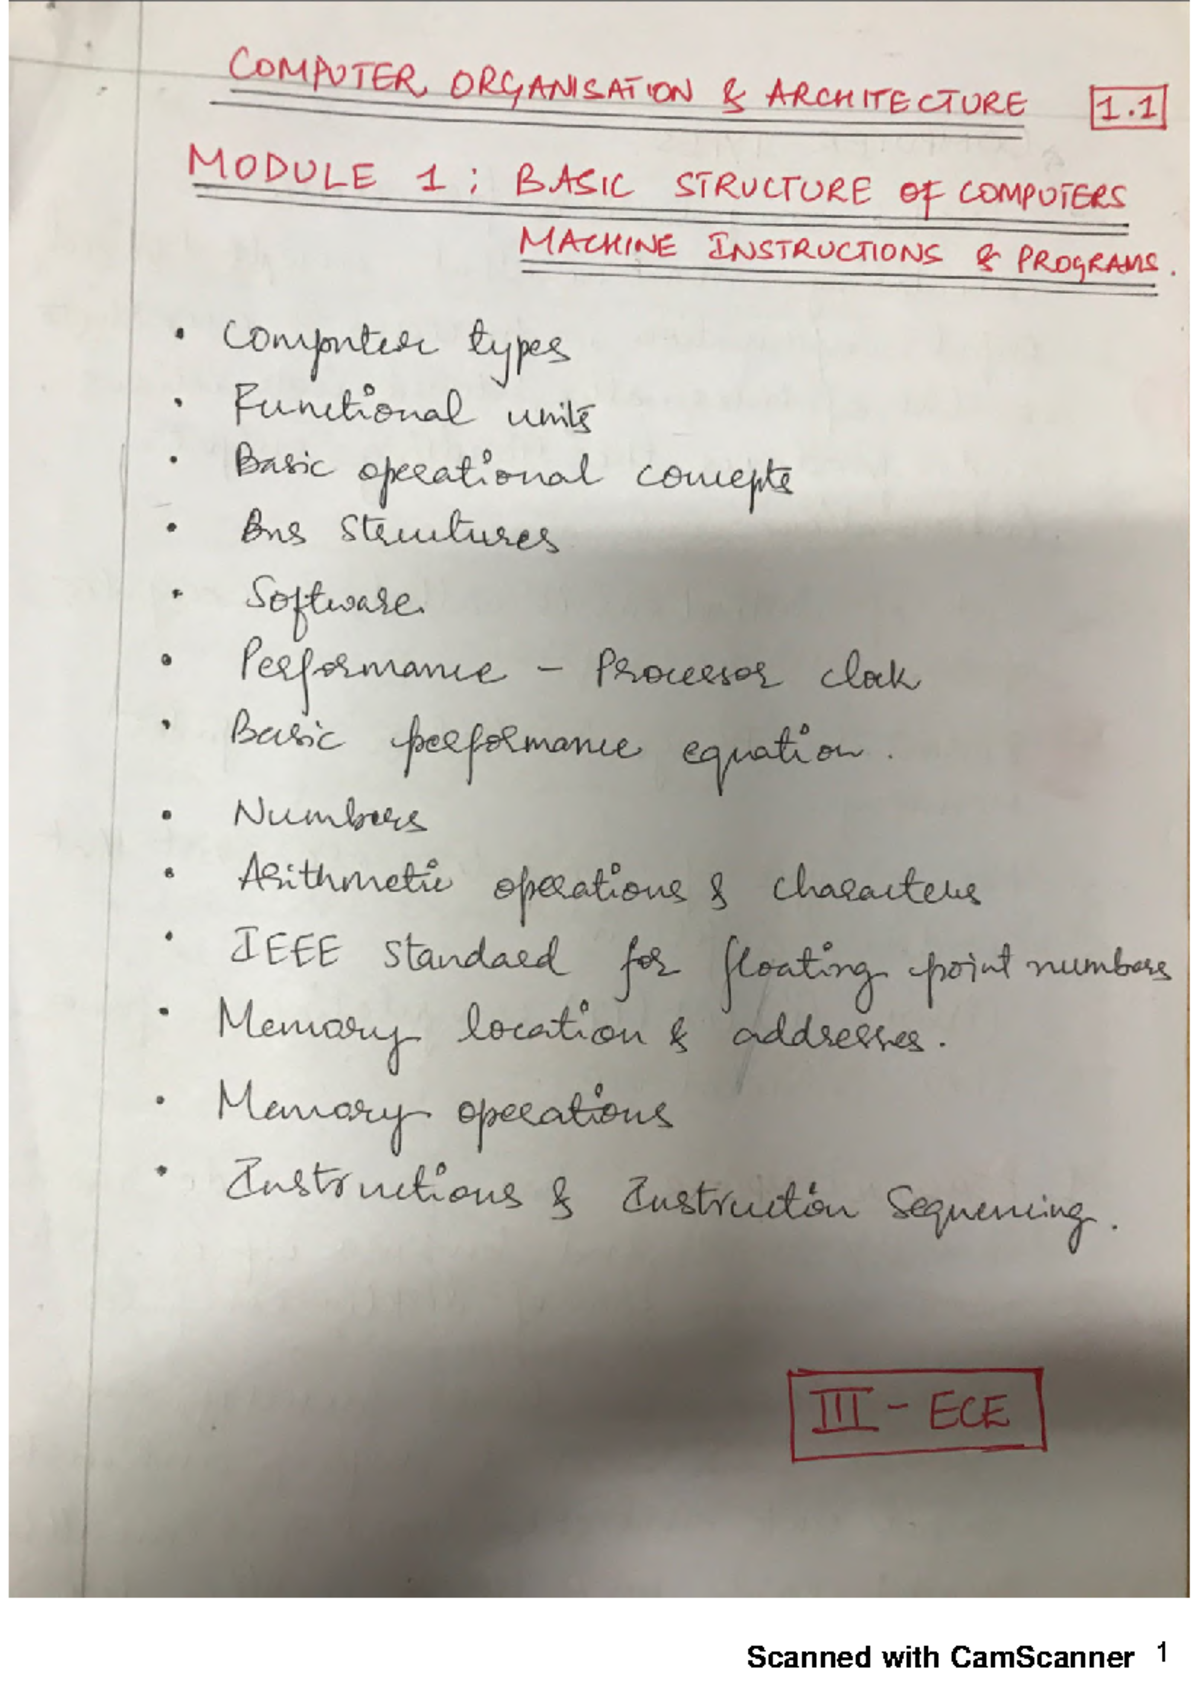 COMPUTER ORGANISATION & ARCHITECTURE 1.1
MODULE 1 : BASIC STRUCTURE OF COMPUTERS
MACHINE INSTRUCTIONS & PROGRAMS.
• Computer types
• Functional units
• Basic operational concepts
• Bus structures
• Software.
• Performance – Processor clock
• Basic performance equation.
• Numbers
• Arithmetic operations & characters
• IEEE standard for floating point numbers
• Memory location & addresses.
• Memory operations
• Instructions & Instruction Sequencing.
III - ECE
Scanned with CamScanner 1